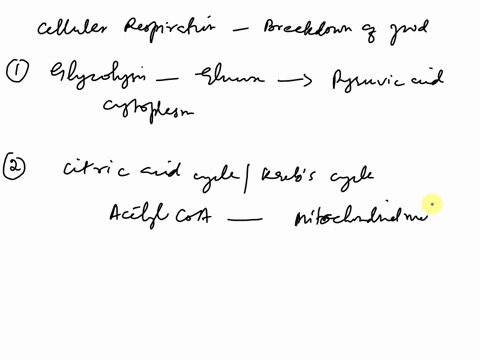 Cellular Respiration – Breakdown of food
① Glycolysis – Glucose → Pyruvic acid
cytoplasm
② Citric acid cycle / Kreb's cycle
Acetyl CoA — Mitochondrial